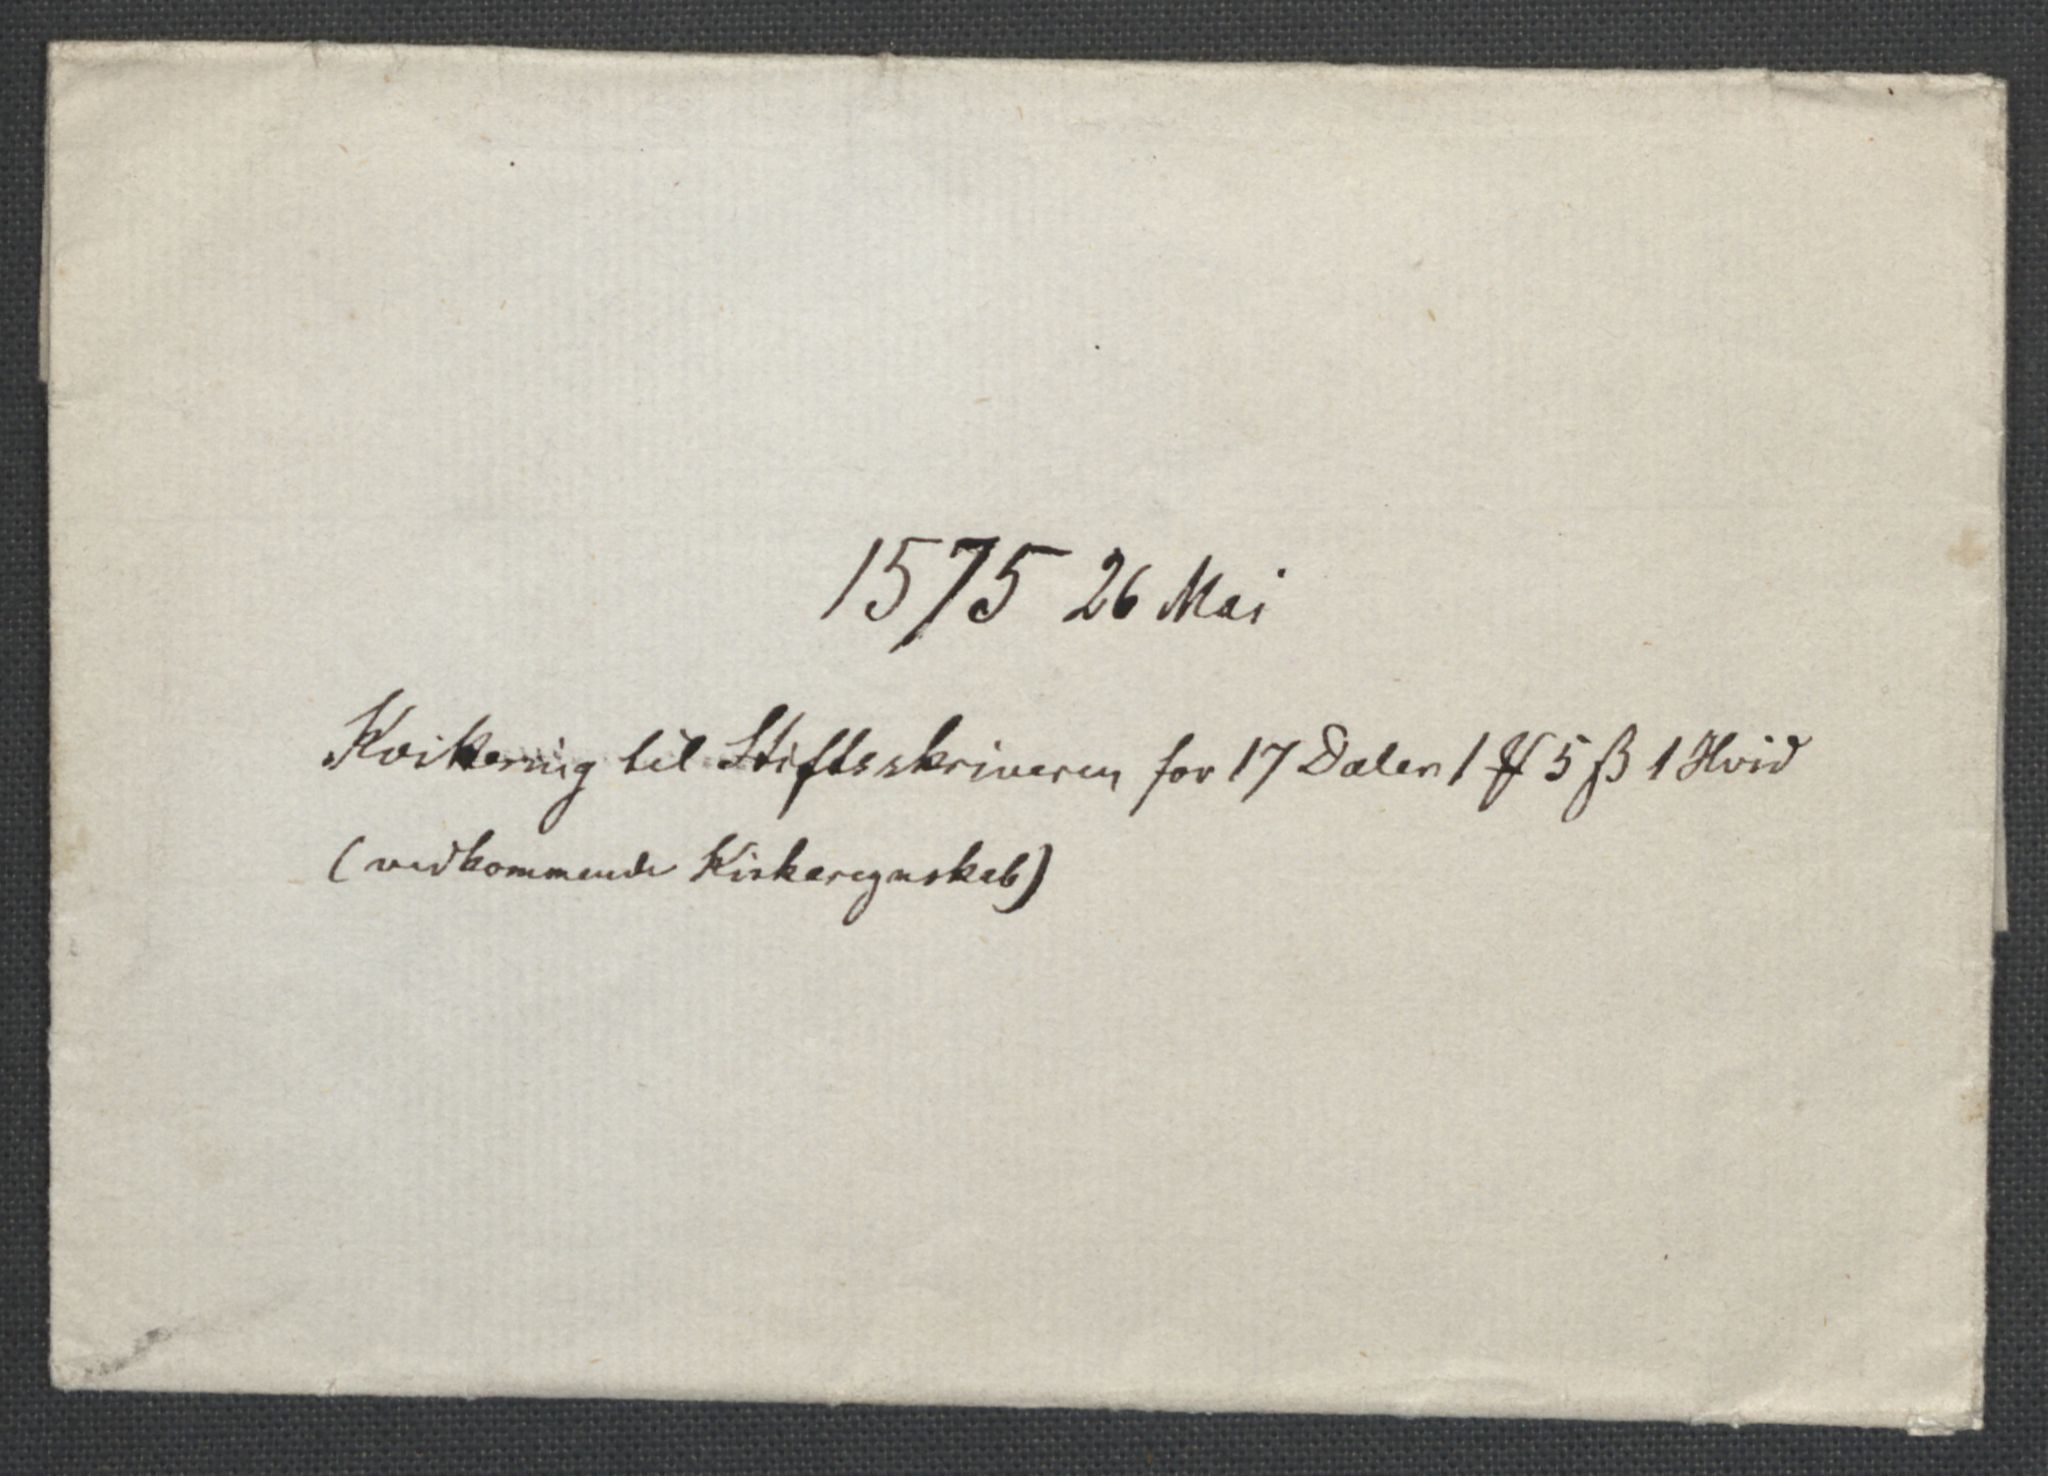 1575 26 Mai
Kvittering til Stiftsskriveren for 17 Daler 1 ℔ 5 ß 1 Hvid
(vedkommende Kirkeregnskab)